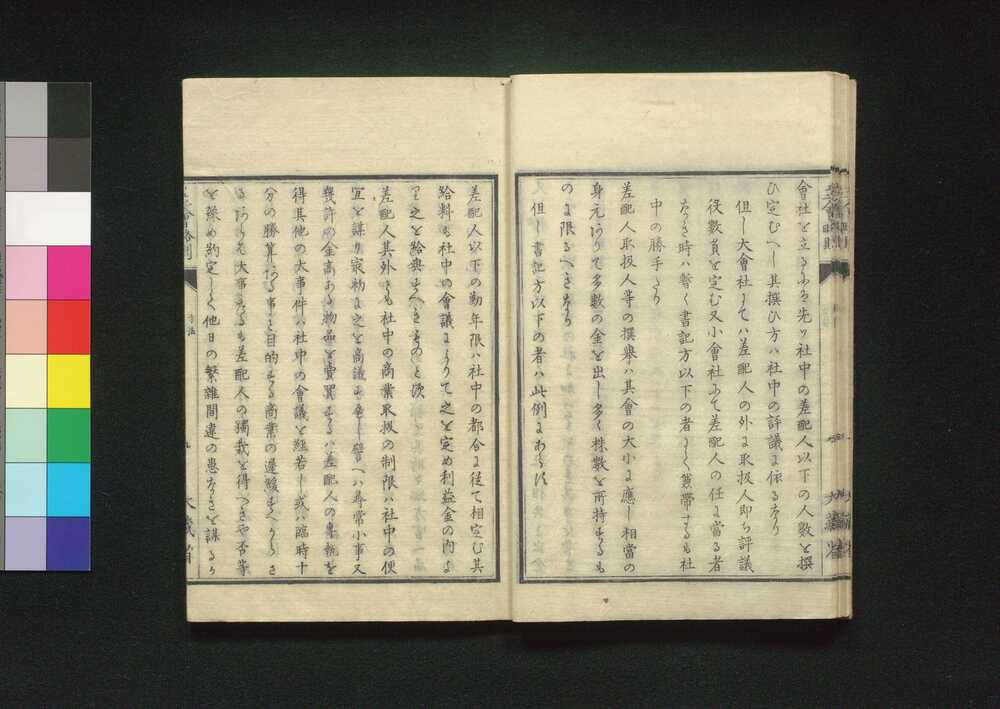 會社を立るにハ先ツ社中の差配人以下の人數を撰
ひ定むへし其撰ひ方ハ社中の評議に依るなり
但し大會社にてハ差配人の外に取扱人即ち評議
役數員を定む又小會社にて差配人の任に當る者
なき時ハ暫く書記方以下の者にて兼帶するも社
中の勝手たり
差配人取扱人等の撰擧ハ其會の大小に應し相當の
身元ありて多數の金を出し多く株數を所持するも
のに限るへきなり
但し書記方以下の者ハ此例にあらす
差配人以下の勤年限ハ社中の都合に從て相定む其
給料も社中の會議によりて之を定め利益金の内よ
り之を給與すへきものと須
差配人其外にも社中の商業取扱の制限ハ社中の便
宜を謀り兼約に之を商議す可し譬へハ尋常小事又
幾許の金高ある物品を賣買するハ差配人の專執を
得其他の大事件ハ社中の會議を經若し或ハ臨時十
分の勝算ある事を目的する商業の遷延すへからさ
るにあらハ大事たるも差配人の獨裁を得へきや否等
を豫め約定して他日の繁雜間違の患なきを謀るへ
會社略則
方法
九
大藏省